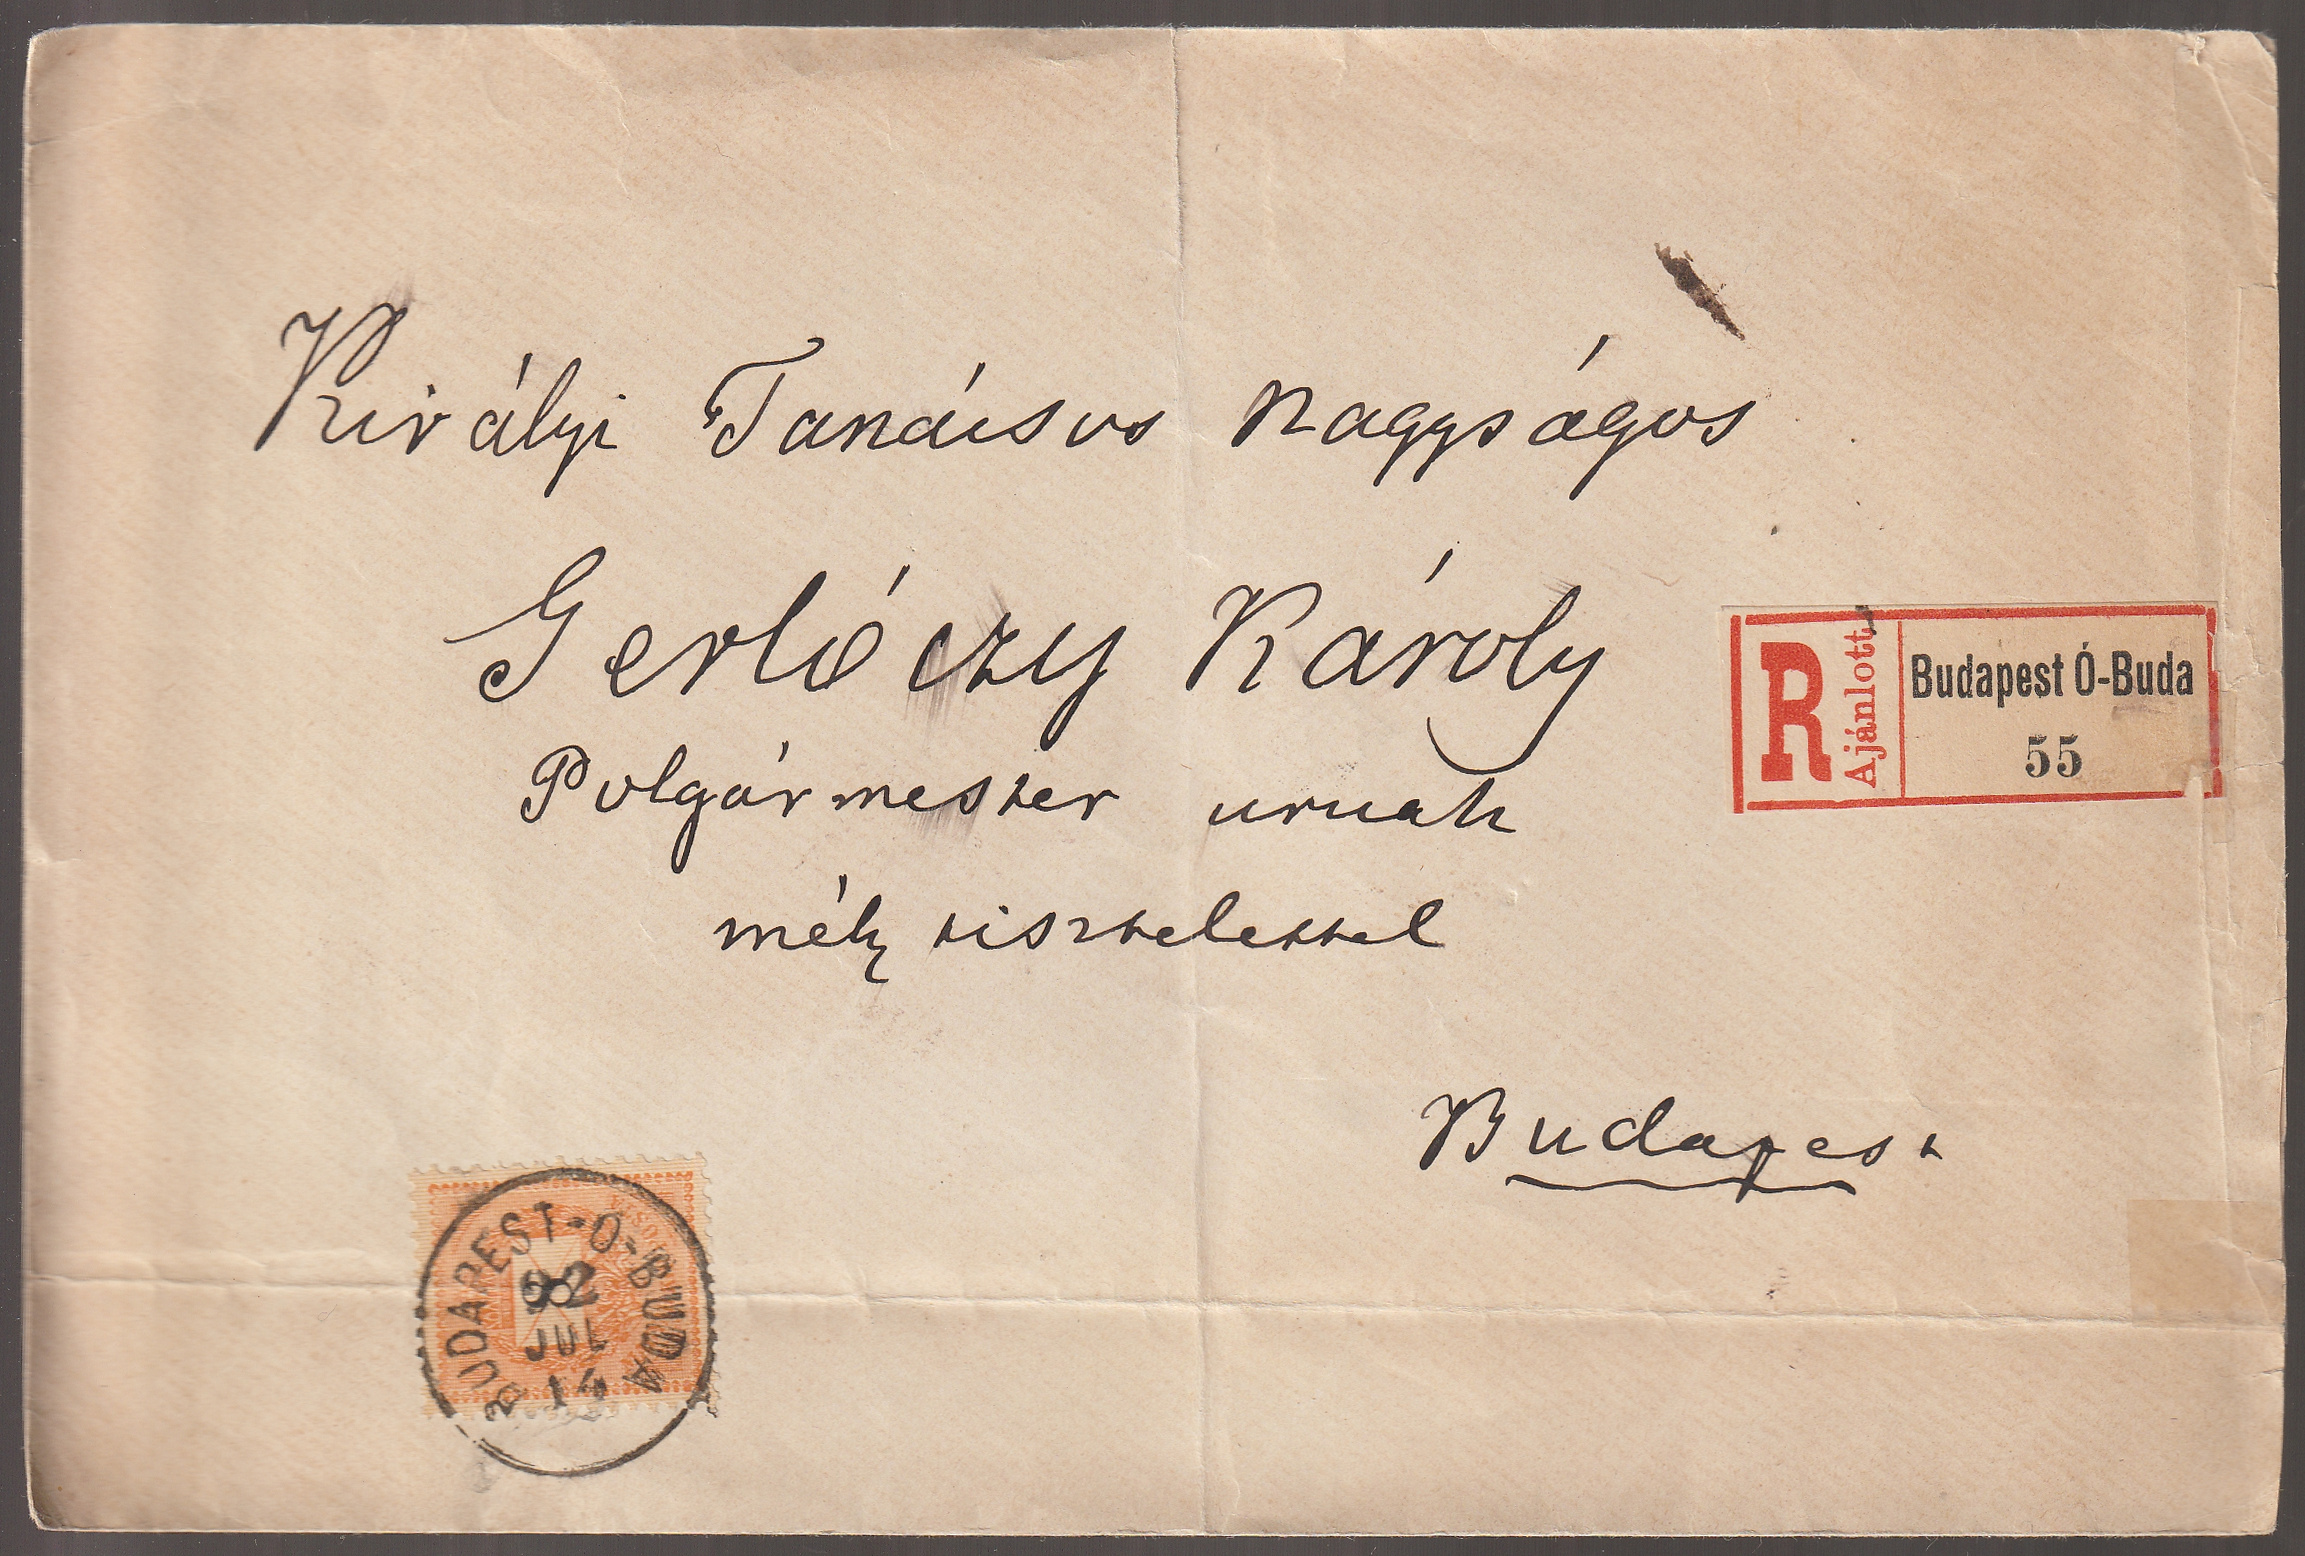 Királyi Tanácsos nagyságos
Gerlóczy Károly
Polgármester urnak
mély tisztelettel
Budapest
R
Ajánlott
Budapest Ó-Buda
55
BUDAPEST-Ó-BUDA
92
JUL
14